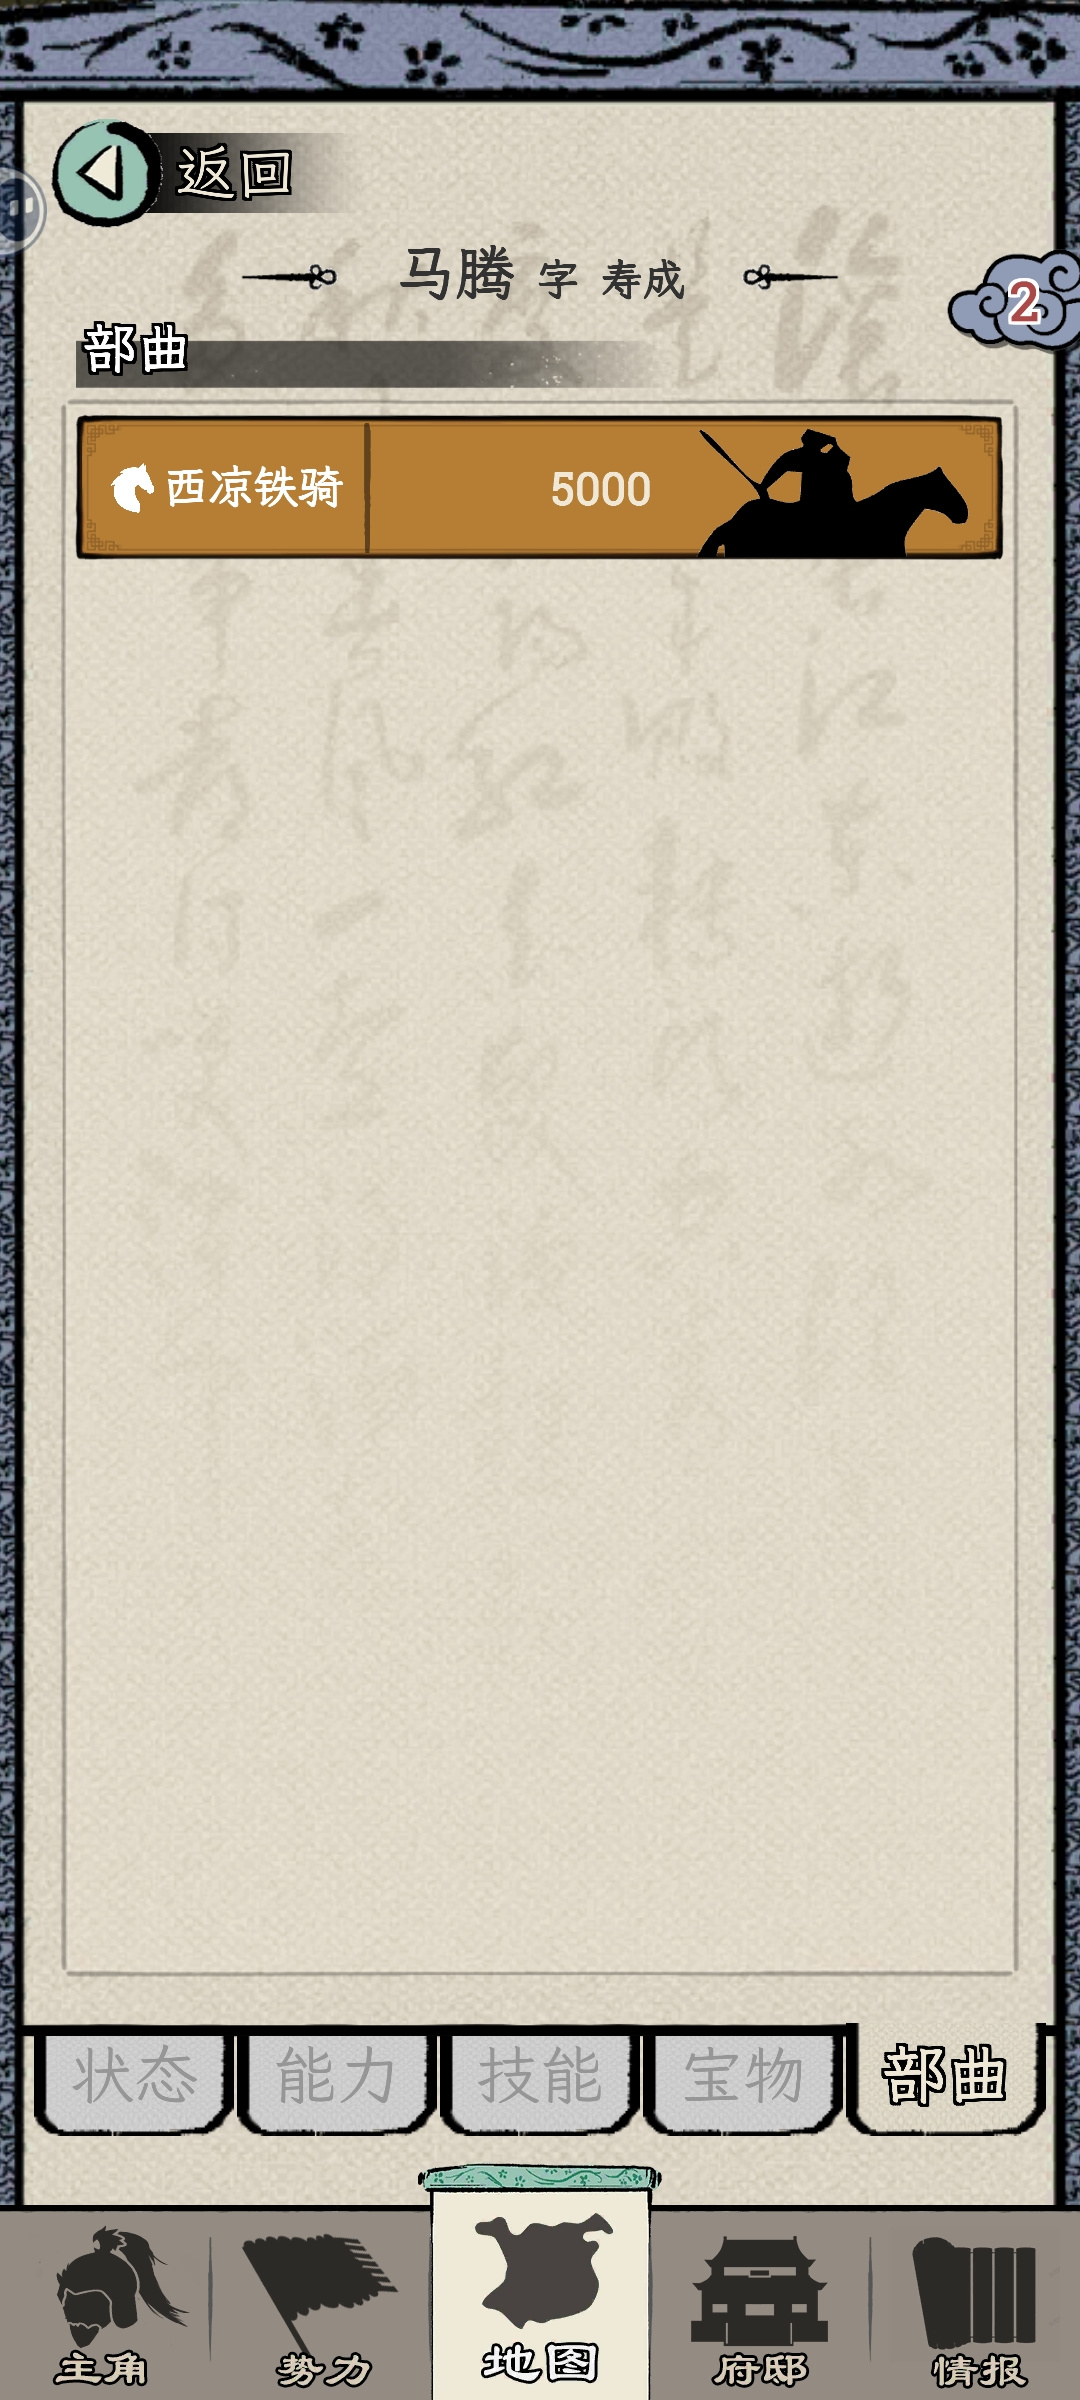 返回
马腾 字 寿成
2
部曲
西凉铁骑 5000
状态 能力 技能 宝物 部曲
主角 势力 地图 府邸 情报